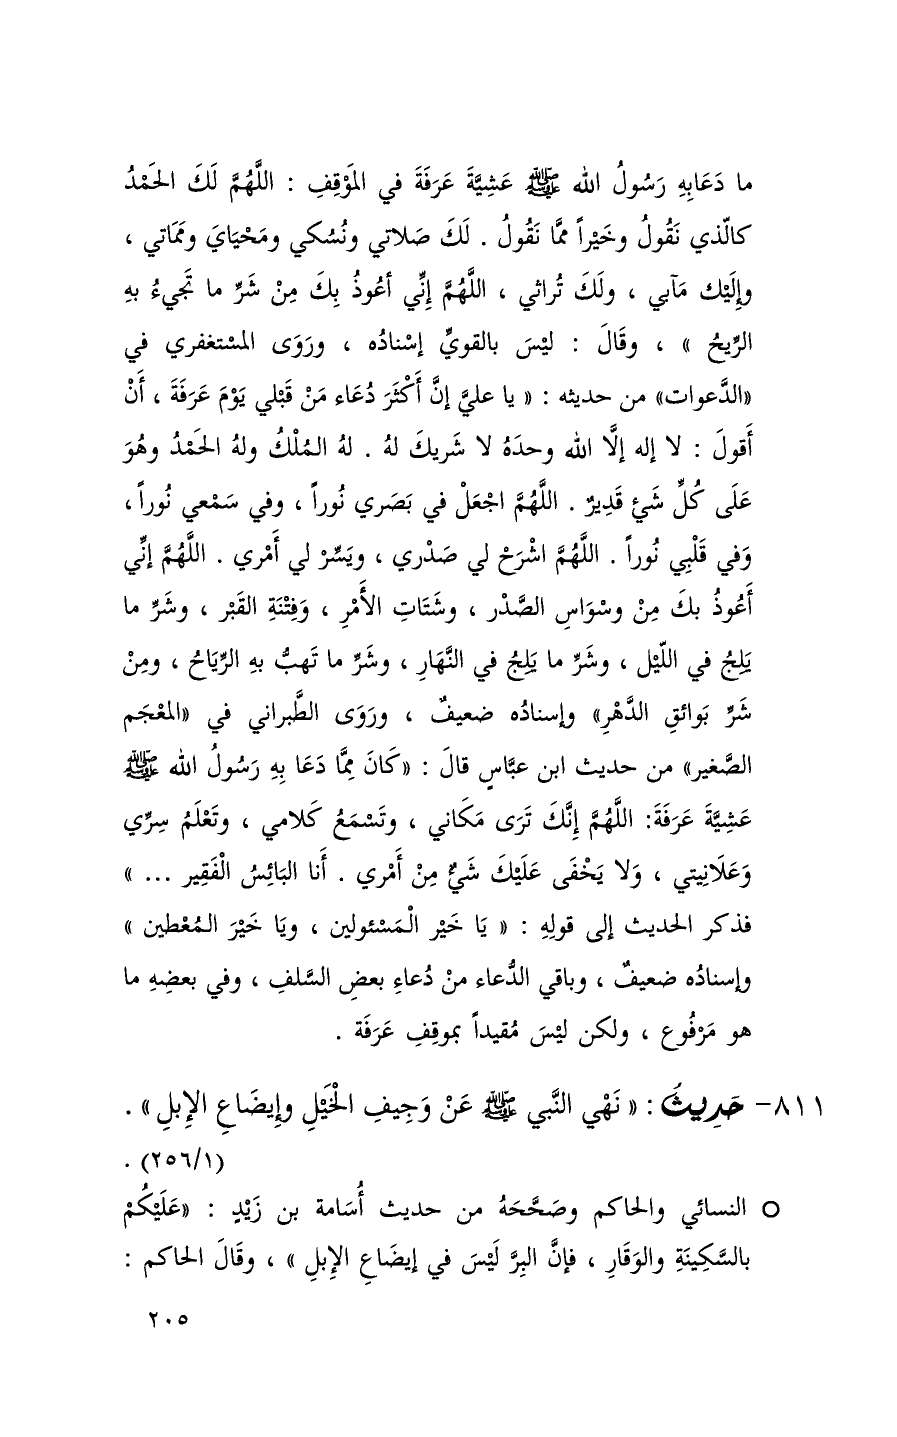 ما دَعَابِهِ رَسُولُ الله ﷺ عَشِيَّةَ عَرَفَةَ في المَوْقِفِ : اللَّهُمَّ لَكَ الحَمْدُ
كالّذي نَقُولُ وخَيْراً ممَّا نَقُولُ . لَكَ صَلاتي ونُسُكي ومَحْيَايَ ومَمَاتي ،
وإِلَيْك مَآبي ، ولَكَ تُراثي ، اللَّهُمَّ إنِّي أعُوذُ بِكَ مِنْ شَرِّ ما تَجيءُ بهِ
الرِّيحُ » ، وقَالَ : ليْسَ بالقويِّ إسْنادُه ، ورَوَى المسْتغفري في
«الدَّعوات» من حديثه : « يا عليَّ إنَّ أَكْثَرَ دُعَاء مَنْ قَبْلي يَوْمَ عَرَفَةَ ، أَنْ
أَقولَ : لا إله إلَّا الله وحدَهُ لا شَريكَ لهُ . لهُ المُلْكُ ولهُ الحَمْدُ وهُوَ
عَلَى كُلِّ شَئ قَدِيرٌ . اللَّهُمَّ اجْعَلْ في بَصَري نُوراً ، وفي سَمْعي نُوراً ،
وَفي قَلْبِي نُوراً . اللَّهُمَّ اشْرَحْ لي صَدْري ، ويَسِّرْ لي أَمْري . اللَّهُمَّ إنِّي
أَعُوذُ بكَ مِنْ وسْوَاسِ الصَّدْر ، وشَتَاتِ الأَمْرِ ، وَفِتْنَةِ القَبْر ، وشَرِّ ما
يَلِجُ في اللّيْل ، وشَرِّ ما يَلِجُ في النَّهَارِ ، وشَرِّ ما تَهبُّ بهِ الرِّيَاحُ ، ومِنْ
شَرِّ بَوائقِ الدَّهْرِ» وإسنادُه ضعيفٌ ، ورَوَى الطَّبراني في «المعْجَم
الصَّغير» من حديث ابن عبَّاسٍ قالَ : «كَانَ مِمَّا دَعَا بِهِ رَسُولُ الله ﷺ
عَشِيَّةَ عَرَفَةَ: اللَّهُمَّ إِنَّكَ تَرَى مَكَاني ، وتَسْمَعُ كَلامي ، وتَعْلَمُ سِرِّي
وَعَلَانِيتي ، وَلا يَخْفَى عَلَيْكَ شَئٌ مِنْ أَمْري . أَنا البَائِسُ الْفَقِير ... »
فذكر الحديث إلى قولِهِ : « يَا خَيْر الْمَسْئولين ، ويَا خَيْرَ المُعْطين »
وإسنادُه ضعيفٌ ، وباقي الدُّعاء منْ دُعاءِ بعضِ السَّلفِ ، وفي بعضِهِ ما
هو مَرْفُوع ، ولكن ليْسَ مُقيداً بموقِفِ عَرَفَة .
٨١١- حَدِيثُ : « نَهْي النَّبي ﷺ عَنْ وَجِيفِ الْخَيْلِ وإِيضَاعِ الإِبلِ » .
(٢٥٦/١) .
○ النسائي والحاكم وصَحَّحَهُ من حديث أُسَامة بن زَيْدٍ : «عَلَيْكُمْ
بالسَّكِينَةِ والوَقَارِ ، فإنَّ البِرَّ لَيْسَ في إيضَاعِ الإِبلِ » ، وقَالَ الحاكم :
٢٠٥